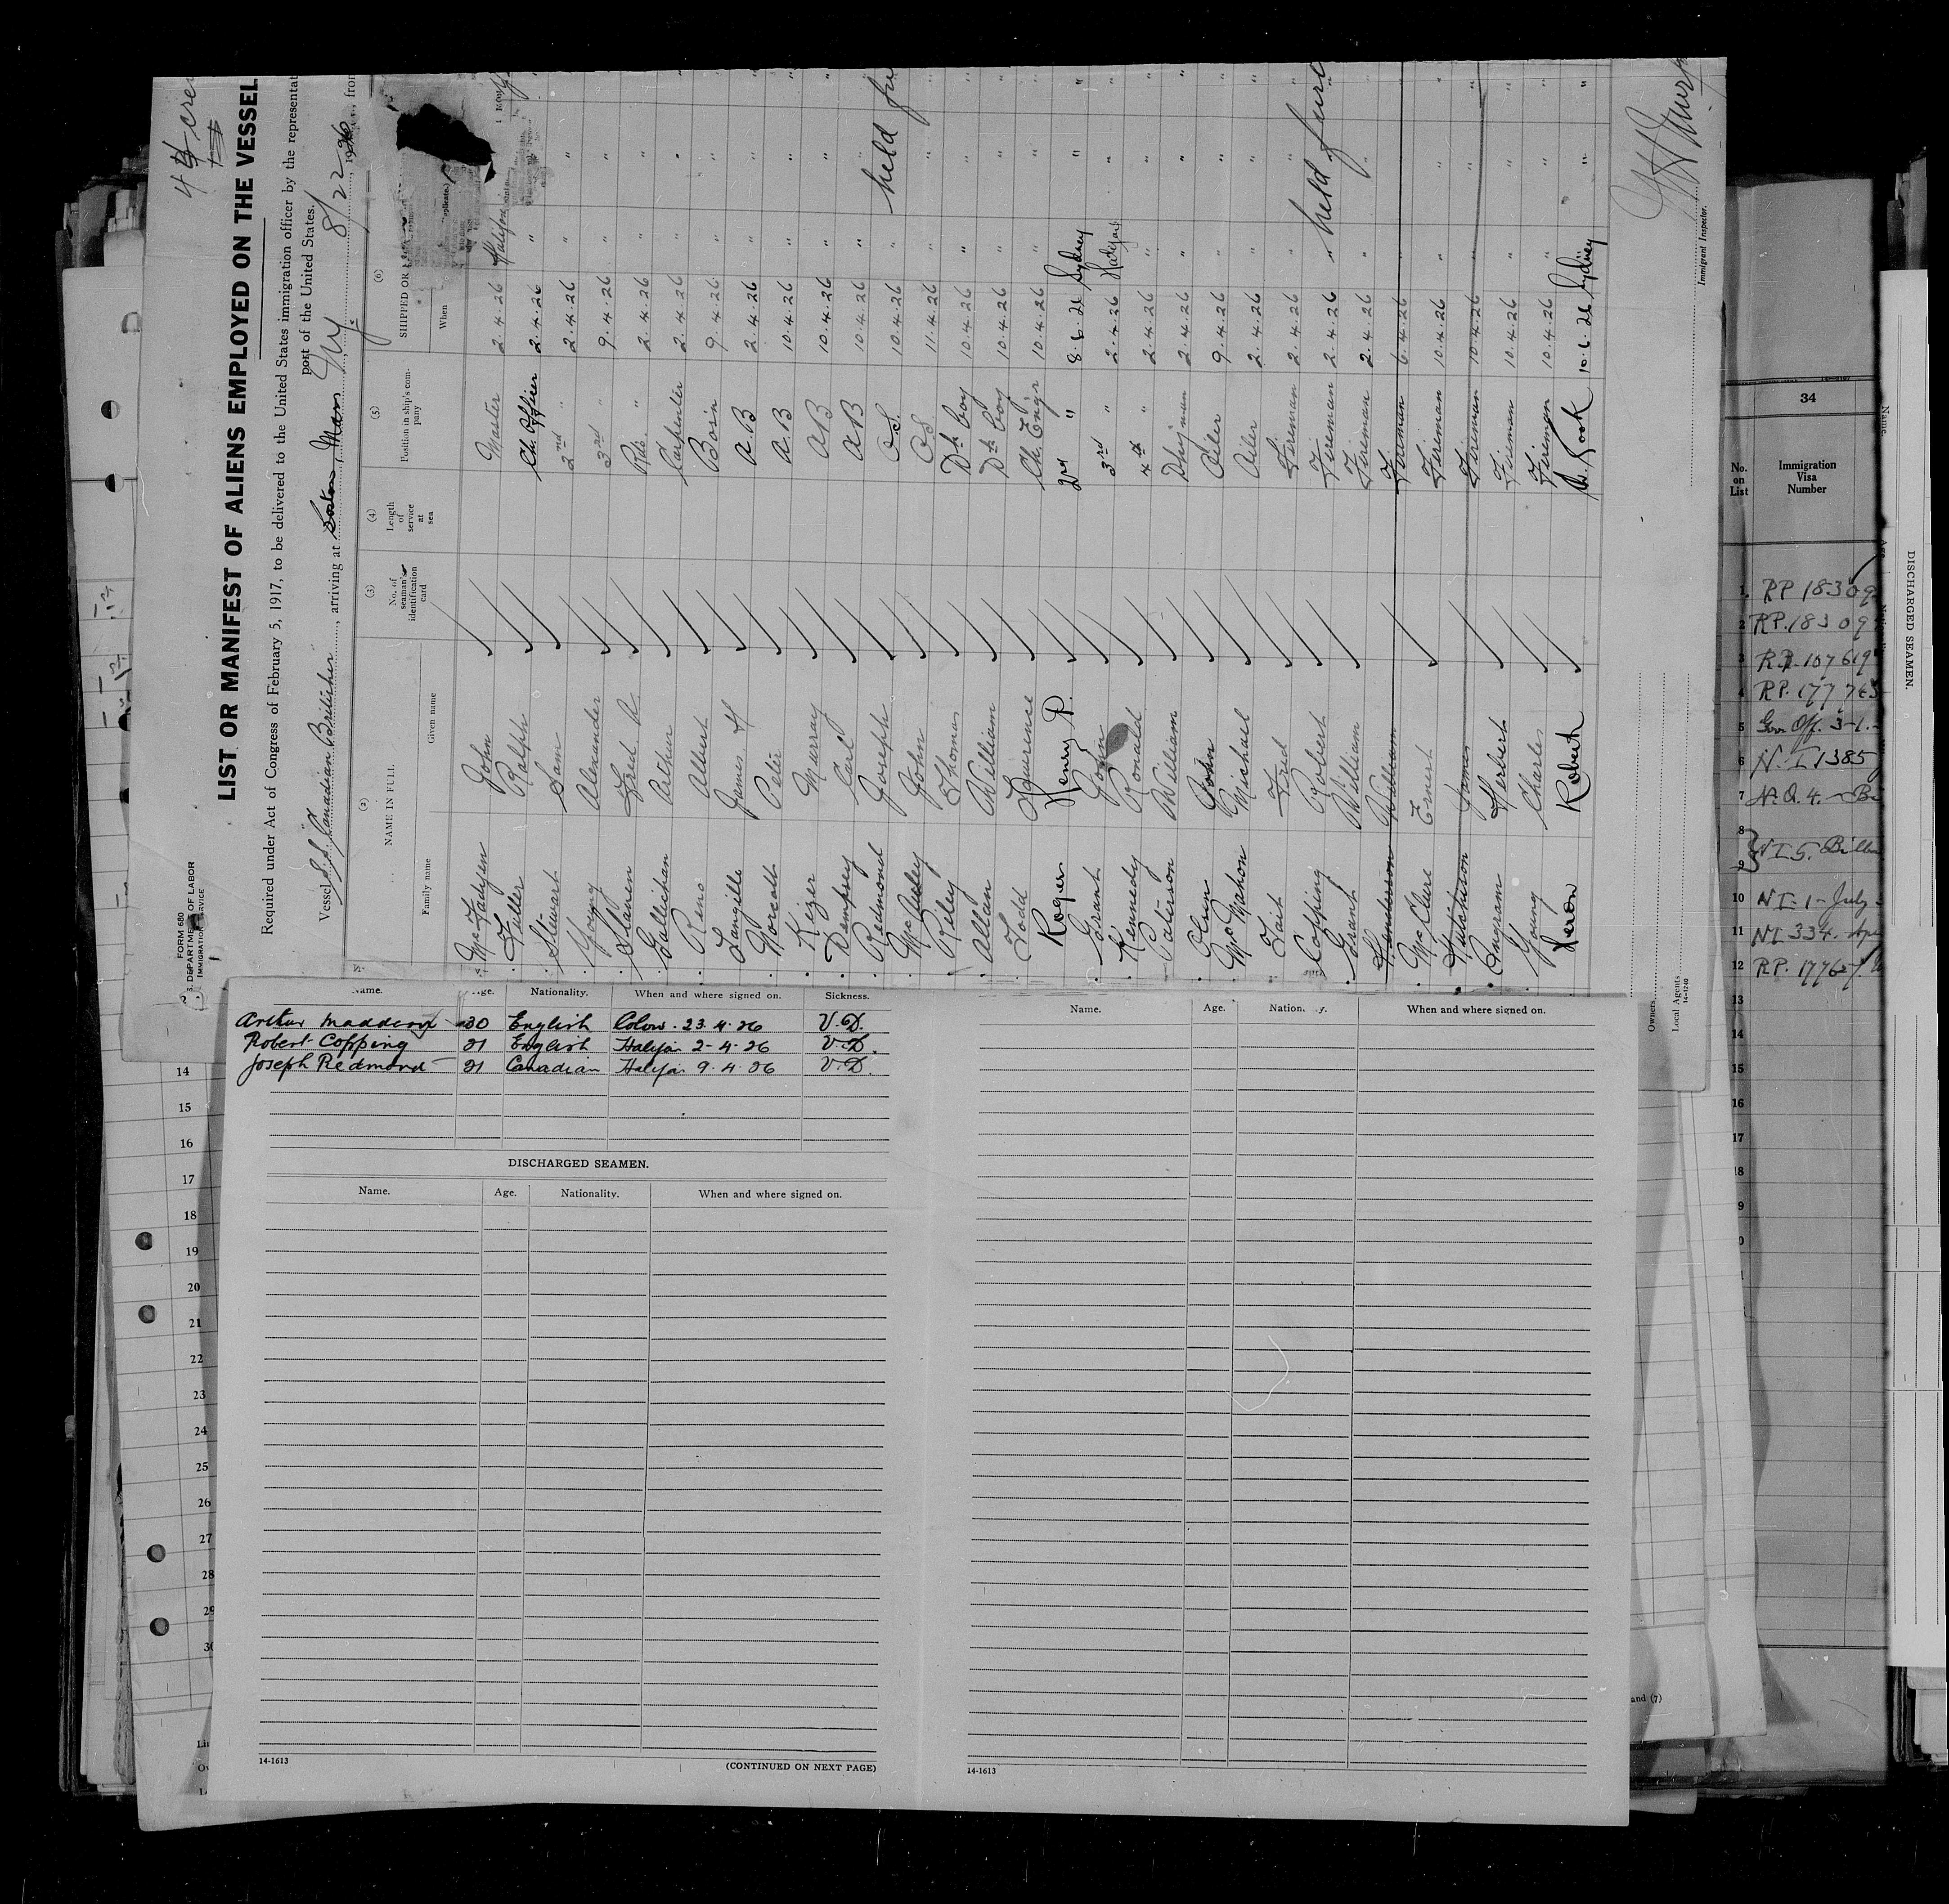 44 crew
FORM 680
U.S. DEPARTMENT OF LABOR
IMMIGRATION SERVICE
LIST OR MANIFEST OF ALIENS EMPLOYED ON THE VESSEL
Required under Act of Congress of February 5, 1917, to be delivered to the United States immigration officer by the representat
port of the United States.
Vessel S.S. Canadian Britisher, arriving at Boston Mass N.Y. 8/22 1926, from
(2) (3) (4) (5) (6)
NAME IN FULL No. of seaman's identification card Length of service at sea Position in ship's company SHIPPED OR
Family name Given name When
McFadyen John Master 2.4.26 Halifax
Fuller Ralph Ch. Officer 2.4.26 "
Stewart Sam 2nd " 2.4.26 "
Young Alexander 3rd " 9.4.26 "
Slaven Fred R. " 2.4.26 "
Gallichan Arthur Carpenter 2.4.26 "
Reno Albert Bosn 9.4.26 "
Langille James H A.B 2.4.26 "
Peter A.B 10.4.26 "
Keizer Murray AB 10.4.26 "
Dempsey Carl AB 10.4.26 "
Redmond Joseph O.S. 10.4.26 " held fu
John O.S 11.4.26 "
Riley Thomas Dk boy 10.4.26 "
Allan William Dk boy 10.4.26 "
Todd Laurence Ch. Engr 10.4.26 "
Rogers Henry P. 2nd " 8.6.26 Sydney "
Grant John 3rd " 2.4.26 Halifax "
Kennedy Ronald 4th " 2.4.26 "
Paterson William 2.4.26 "
John Oiler 9.4.26 "
McMahon Michael Oiler 2.4.26 "
Tait Fred Fireman 2.4.26 "
Copping Robert Fireman 2.4.26 " held furt
Grant William Fireman 2.4.26 "
Henderson William Fireman 6.4.26 "
McClure Ernest Fireman 10.4.26 "
Hutchison James Fireman 10.4.26 "
Angram Herbert Fireman 10.4.26 "
Young Charles Fireman 10.4.26 "
Robert Cook 10.6.26 Sydney "
Immigrant Inspector.
Owners
Local Agents
14-1240
Name. Age. Nationality. When and where signed on. Sickness.
Arthur 30 English 23.4.26 V.D.
Robert Copping 21 English Halifax 2-4-26 V.D.
Joseph Redmond 21 Canadian Halifax 9.4.26 V.D.
DISCHARGED SEAMEN.
Name. Age. Nationality. When and where signed on.
14-1613
(CONTINUED ON NEXT PAGE)
Name. Age. Nation y. When and where signed on.
14-1613
14
15
16
17
18
19
20
21
22
23
24
25
26
27
28
29
30
34
No. on List
Immigration Visa Number
1 RP 18309
2 RP. 18309
3 RP. 107619
4 RP. 177763
5 Gov Off. 3-1-
6 N.I 1385
7 N.Q. 4.
8
9 N I 5.
10 NI-1-July
11 NI 334.
12 RP. 17762
13
14
15
16
17
18
and (7)
DISCHARGED SEAMEN.
Name